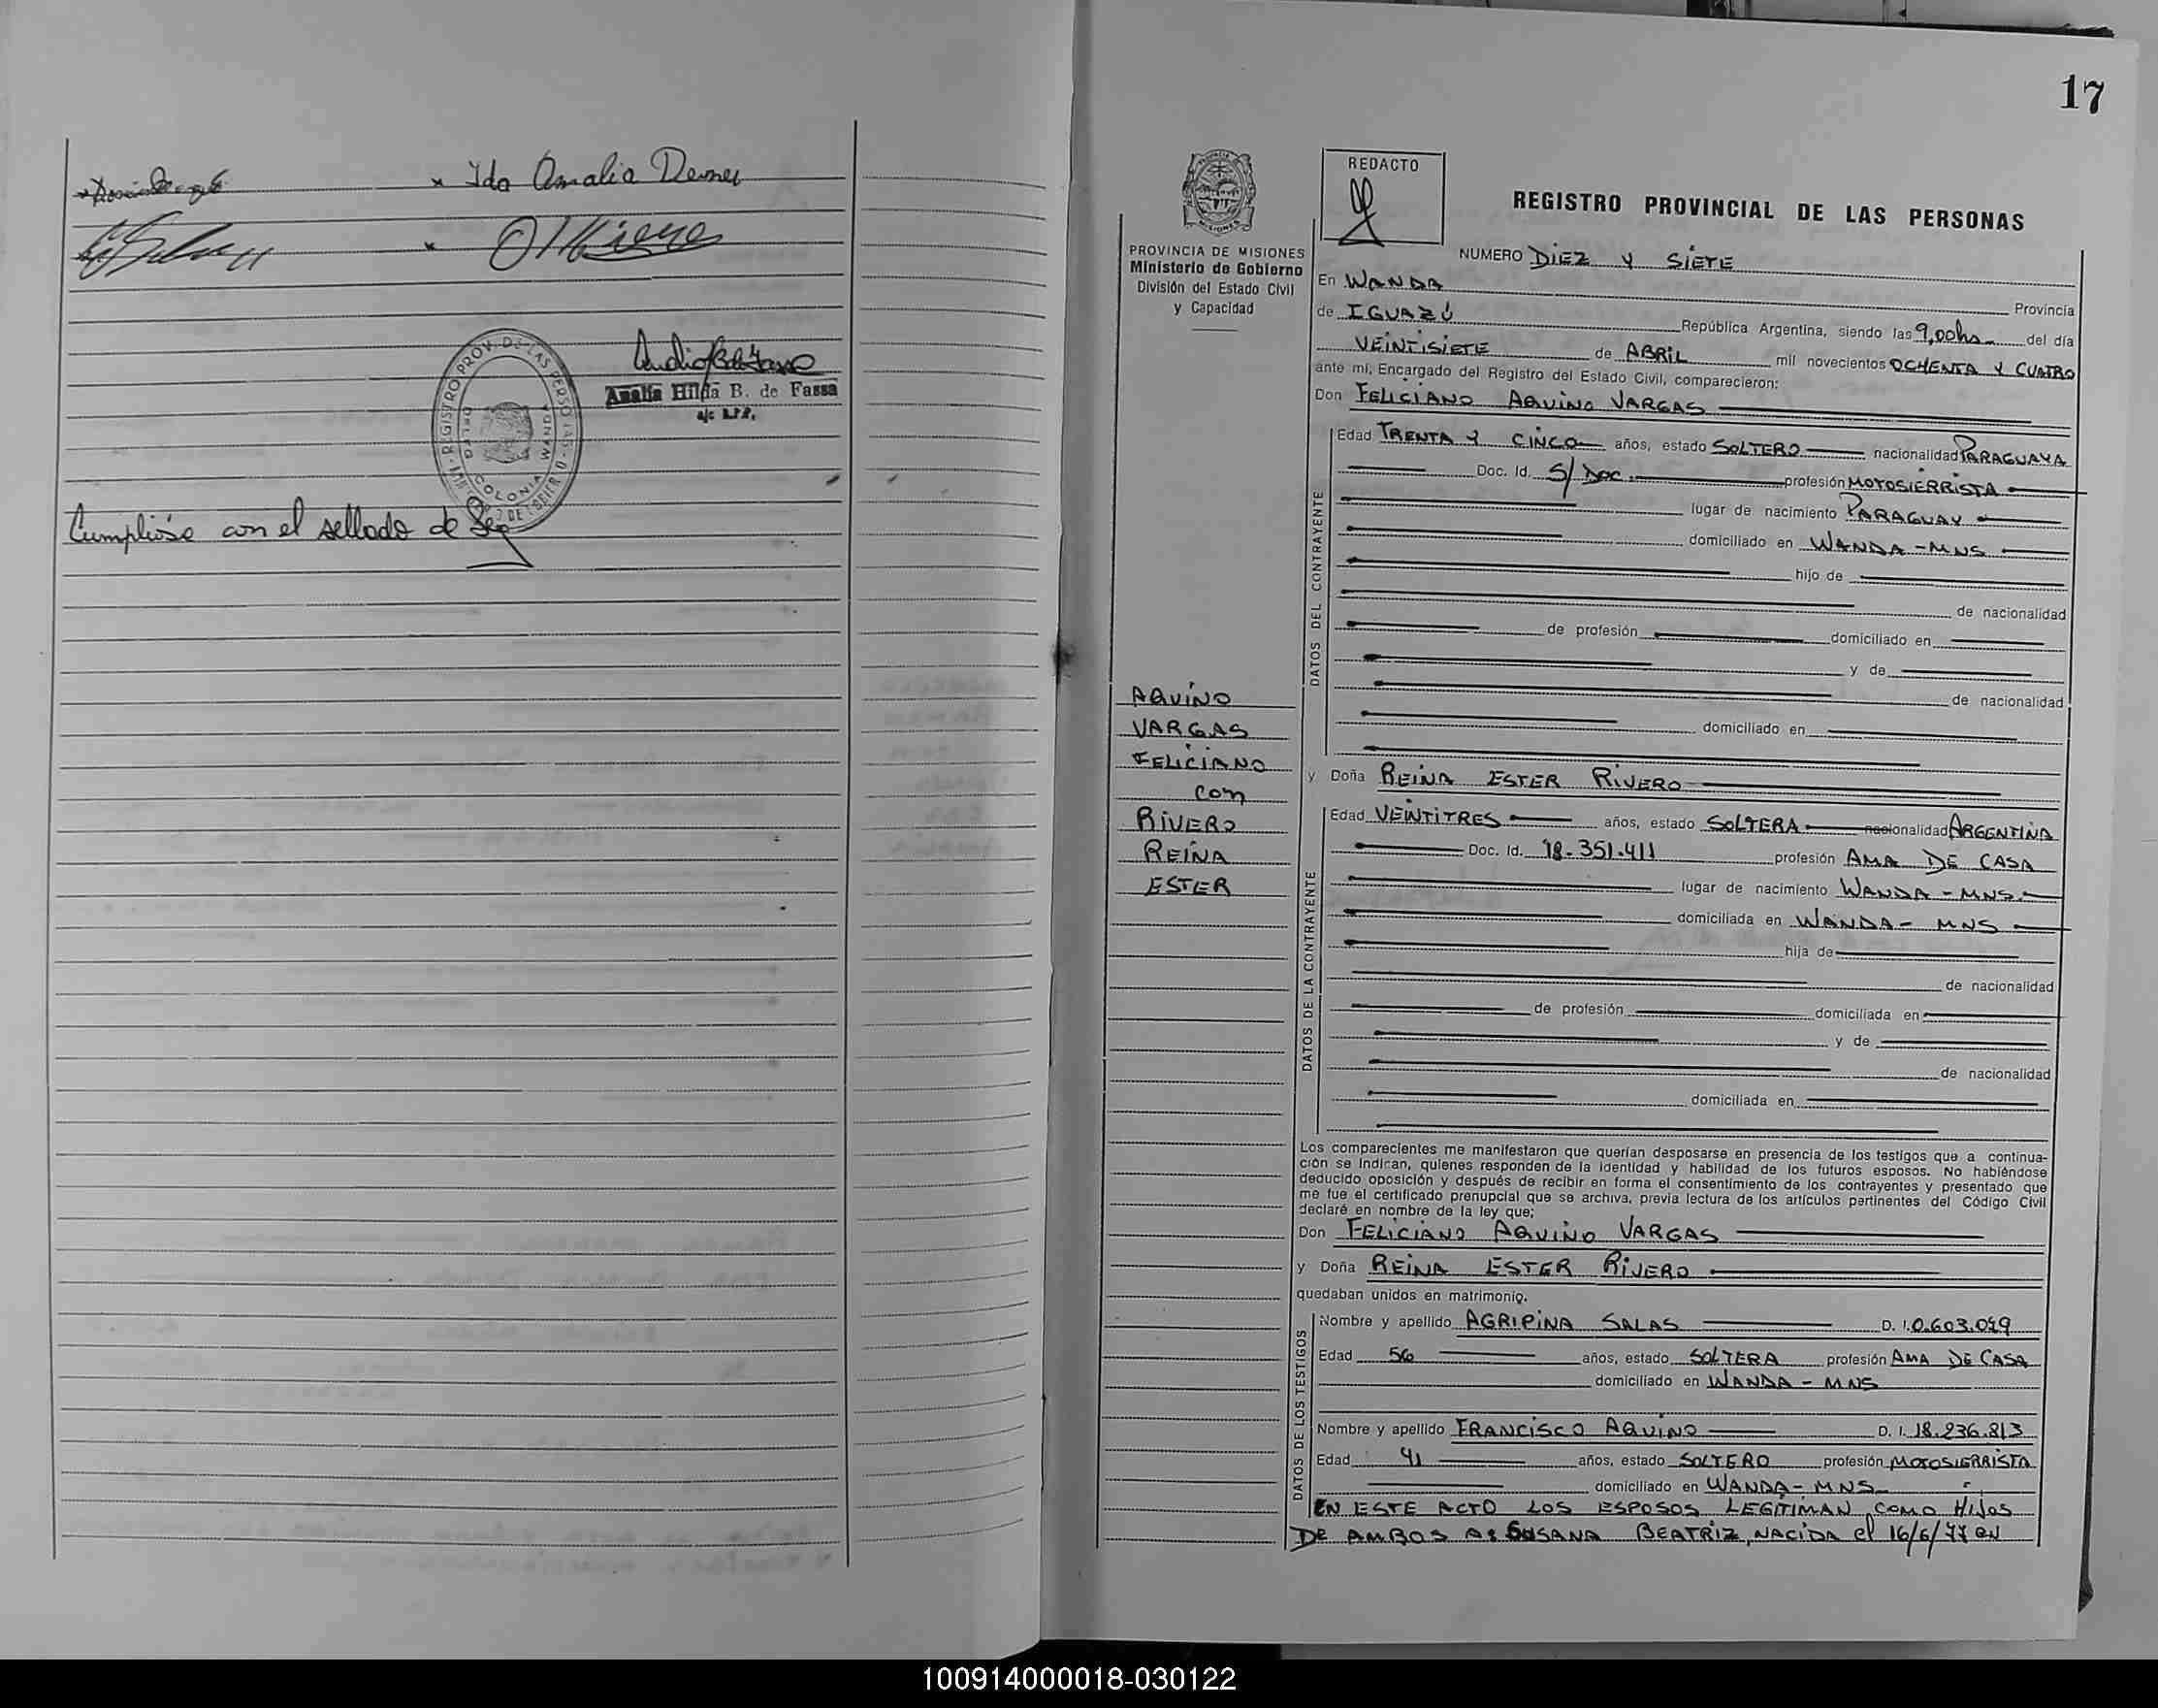 Ida Amalia
Analia Hilda B. de Fassa
a/c R.P.P.
REGISTRO PROV. DE LAS PERSONAS
COLONIA WANDA
Cumplióse con el sellado de Ley
17
REDACTO
REGISTRO PROVINCIAL DE LAS PERSONAS
PROVINCIA DE MISIONES
Ministerio de Gobierno
División del Estado Civil
y Capacidad
NUMERO DIEZ Y SIETE
En WANDA
Provincia
de IGUAZÚ República Argentina, siendo las 9,00hs del día
VEINTISIETE de ABRIL mil novecientos OCHENTA Y CUATRO
ante mí, Encargado del Registro del Estado Civil, comparecieron:
Don FELICIANO AQUINO VARGAS
DATOS DEL CONTRAYENTE
Edad TRENTA Y CINCO años, estado SOLTERO nacionalidad PARAGUAYA
Doc. Id. S/ Doc. profesión MOTOSIERRISTA
lugar de nacimiento PARAGUAY
domiciliado en WANDA - MNS
hijo de
de nacionalidad
de profesión domiciliado en
y de
de nacionalidad
domiciliado en
AQUINO
VARGAS
FELICIANO
con
RIVERO
REINA
ESTER
y Doña REINA ESTER RIVERO
DATOS DE LA CONTRAYENTE
Edad VEINTITRES años, estado SOLTERA nacionalidad ARGENTINA
Doc. Id. 18.351.411 profesión AMA DE CASA
lugar de nacimiento WANDA - MNS.
domiciliada en WANDA - MNS
hija de
de nacionalidad
de profesión domiciliada en
y de
de nacionalidad
domiciliada en
Los comparecientes me manifestaron que querían desposarse en presencia de los testigos que a continua-
ción se indican, quienes responden de la identidad y habilidad de los futuros esposos. No habiéndose
deducido oposición y después de recibir en forma el consentimiento de los contrayentes y presentado que
me fue el certificado prenupcial que se archiva, previa lectura de los artículos pertinentes del Código Civil
declaré en nombre de la ley que;
Don FELICIANO AQUINO VARGAS
y Doña REINA ESTER RIVERO
quedaban unidos en matrimonio.
DATOS DE LOS TESTIGOS
Nombre y apellido AGRIPINA SALAS D. I. 0.603.029
Edad 56 años, estado SOLTERA profesión AMA DE CASA
domiciliado en WANDA - MNS
Nombre y apellido FRANCISCO AQUINO D. I. 18.236.813
Edad 41 años, estado SOLTERO profesión MOTOSIERRISTA
domiciliado en WANDA - MNS
EN ESTE ACTO LOS ESPOSOS LEGITIMAN COMO HIJOS
DE AMBOS A: SUSANA BEATRIZ, NACIDA el 16/6/77 EN
100914000018-030122